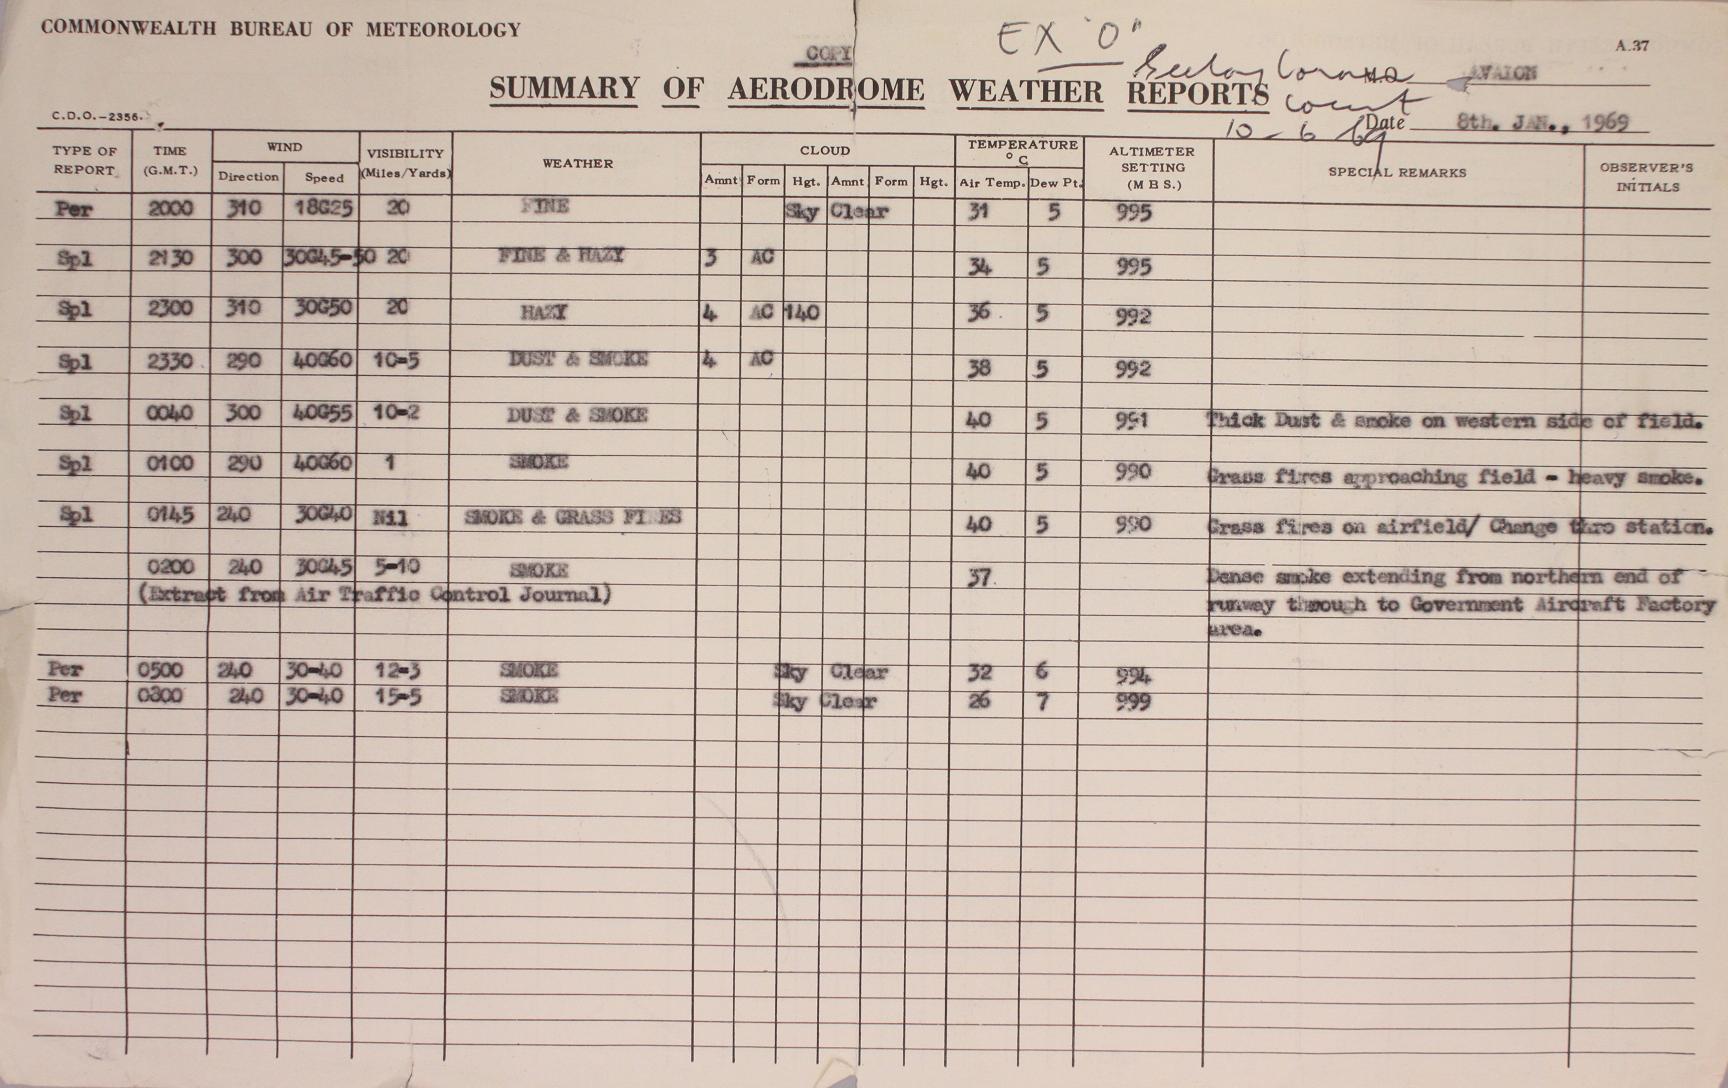 COMMONWEALTH BUREAU OF METEOROLOGY
COPY
EX "O"
A.37
Geelong Coroners
M.O. AVALON
SUMMARY OF AERODROME WEATHER REPORTS
Court
C.D.O.—2356.
10-6-69
Date 8th. JAN., 1969
TYPE OF REPORT TIME (G.M.T.) WIND VISIBILITY (Miles/Yards) WEATHER CLOUD TEMPERATURE °C ALTIMETER SETTING (M B S.) SPECIAL REMARKS OBSERVER'S INITIALS
Direction Speed Amnt Form Hgt. Amnt Form Hgt. Air Temp. Dew Pt.
Per 2000 310 18G25 20 FINE Sky Clear 31 5 995
Spl 2130 300 30G45-50 20 FINE & HAZY 3 AC 34 5 995
Spl 2300 310 30G50 20 HAZY 4 AC 140 36 5 992
Spl 2330 290 40G60 10-5 DUST & SMOKE 4 AC 38 5 992
Spl 0040 300 40G55 10-2 DUST & SMOKE 40 5 991 Thick Dust & smoke on western side of field.
Spl 0100 290 40G60 1 SMOKE 40 5 990 Grass fires approaching field - heavy smoke.
Spl 0145 240 30G40 Nil SMOKE & GRASS FIRES 40 5 990 Grass fires on airfield/ Change thro station.
0200 240 30G45 5-10 SMOKE 37. Dense smoke extending from northern end of
(Extract from Air Traffic Control Journal) runway through to Government Aircraft Factory
area.
Per 0500 240 30-40 12-3 SMOKE Sky Clear 32 6 994
Per 0800 240 30-40 15-5 SMOKE Sky Clear 26 7 999